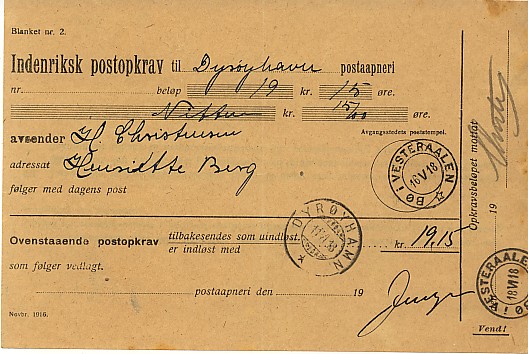 Blanket nr. 2.
Indenriksk postopkrav til Dyrøyhavn postaapneri
nr. beløp 19 kr. 15 øre.
Nitten kr. 15/100 øre.
avsender H. Christensen
Avgangsstedets poststempel.
adressat Berg
følger med dagens post
BØ I VESTERAALEN 16 V 18
Ovenstaaende postopkrav tilbakesendes som uindløst
er indløst med kr. 19,15
DYRØYHAMN
som følger vedlagt.
postaapneri den 19
Novbr. 1916.
Opkravsbeløpet mottat
19
BØ I VESTERAALEN 18 VI 18
Vend!